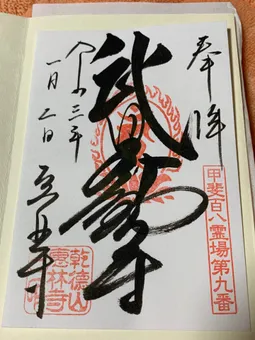 奉拝
甲斐百八霊場第九番
武田不動尊
令和三年
一月二日
恵林寺
乾徳山
惠林寺